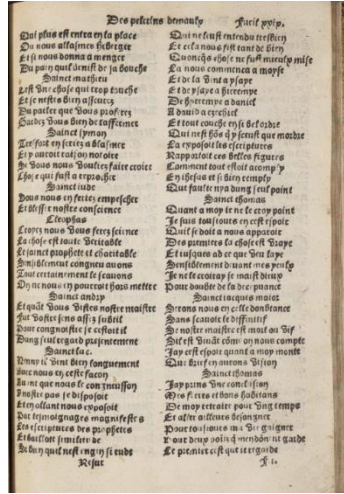 Des pelerins demaulx
Fueil xxix.
Qui plus est entra en la place
Ou nous allasmes heberger
Et si nous donna a menger
Du pain quil benist de sa bouche
Sainct mathieu
Cest une chose qui trop touche
Et je mesbis bien asseurez
Du parler que vous proferez
Gardez vous bien de caffermer
Sainct symon
Tresfort en seriez a blasmer
Et y auroit raison notoire
Se vous nous vouliez faire croire
Chose qui fust a reprocher
Sainct iude
Vous nous en feriez empescher
Et blesser nostre conscience
Cleophas
Croyez nous vous ferez science
La chose est toute veritable
Et sainct prophete et charitable
Sensiblement congneu avons
Tout certainement le scavons
On ne nous en pourroit hors mettre
Sainct andry
Et quant vous vistes nostre maistre
Fut vostre sens assez subtil
Pour congnoistre se cestoit il
Dung seul regard presentement
Sainct luc.
Nenny il vint bien longuement
Avec nous en ceste facon
Avant que nous le congneusson
Enostre pas se disposoit
Et en allant nous exposoit
Par tesmoignages magnifestes
Les escriptures des prophetes
Et bailloit similitude
Si bien quil nest engin si rude
Resur
Qui ne leust entendu tresbien
Et cela nous fist tant de bien
Quoncques chose ne fust mieulx mise
La nous commenca a moyse
Et de la vint a ysaye
Et de ysaye a hieremye
De hyeremye a daniel
A david a ezechiel
Et tout couche en si bel ordre
Qui nest hons qui y sceust que mordre
La exposoit les escriptures
Rapportoit ces belles figures
Comment tout estoit acomply
En ihesus et si bien remply
Qui faulte nya dung seul point
Sainct thomas
Quant a moy ie ne le croy point
Je suis tousiours en cest espoir
Quil se doit a nous apparoir
Des premiers la chose est vraye
Et iusques ad ce que veu laye
Sensiblement devant mes yeulx
Je ne le croiray se maist dieux
Pour doubte de la decepuance
Sainct iacques maior
Serons nous en celle doubtance
Sans scavoir le diffinitif
Se nostre maistre est mort ou vif
Dit est vivant comme on nous compte
Jay cest espoir quant a moy monte
Que brief en aurons vision
Sainct thomas
Jay prins une conclusion
Mes freres et bons habitans
De moy retraire pour ung temps
Et aller ailleurs besongner
Pour tousiours ma vie gaigner
Pour deux poins qui mendonnent garde
Le premier cest que ie regarde
F.i.